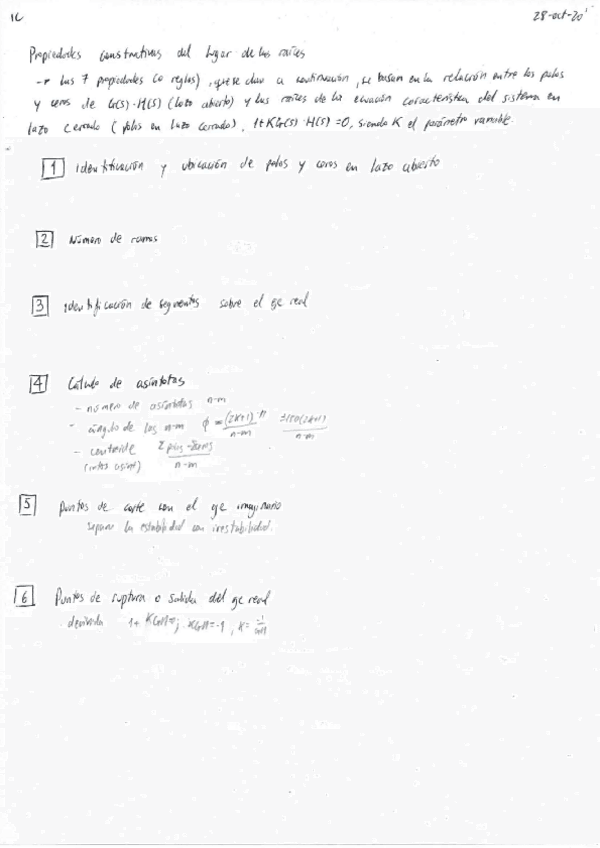 IC 28-oct-20
Propiedades constructivas del lugar de las raíces
→ Las 7 propiedades (o reglas), que se dan a continuación, se basan en la relación entre los polos
y ceros de G(s)·H(s) (lazo abierto) y las raíces de la ecuación característica del sistema en
lazo cerrado (polos en lazo cerrado), 1+KG(s)·H(s)=0, siendo K el parámetro variable.
1 Identificación y ubicación de polos y ceros en lazo abierto
2 Número de ramas
3 Identificación de segmentos sobre el eje real
4 Cálculo de asíntotas
- número de asíntotas n-m
- ángulo de las n-m φ = (2K+1)·π / n-m ±180(2K+1) / n-m
- centroide Σ polos - Σceros / n-m
(inters asínt)
5 Puntos de corte con el eje imaginario
separa la estabilidad con inestabilidad.
6 Puntos de ruptura o salida del eje real
derivada 1+ KGH=0; KGH=-1, K= -1/GH